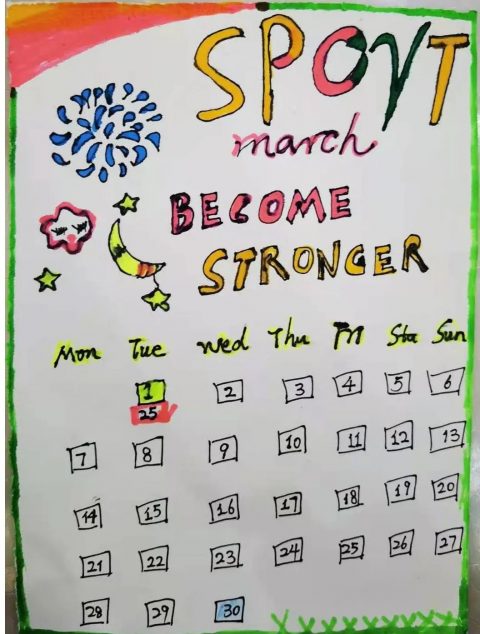 SPOrT
march
BECOME
STRONGER
Mon Tue Wed Thu Fri Sta Sun
1 2 3 4 5 6
25
7 8 9 10 11 12 13
14 15 16 17 18 19 20
21 22 23 24 25 26 27
28 29 30